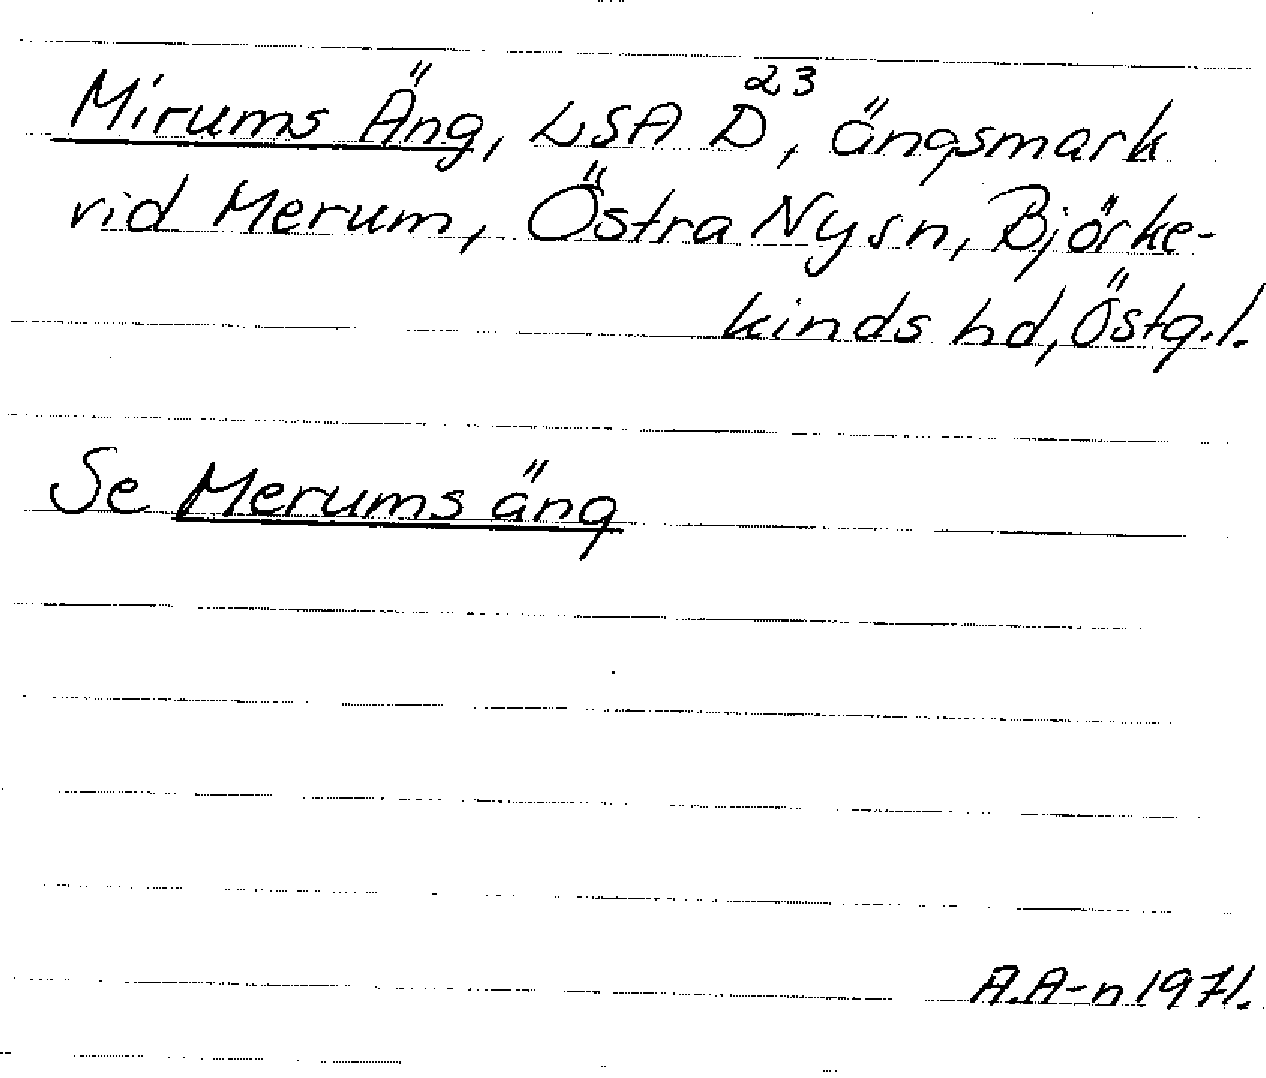 Mirums Äng, LSA D²³, ängsmark
vid Merum, Östra Ny sn, Björke-
kinds hd, Östg.l.
Se Merums äng
A.A-n 1971.